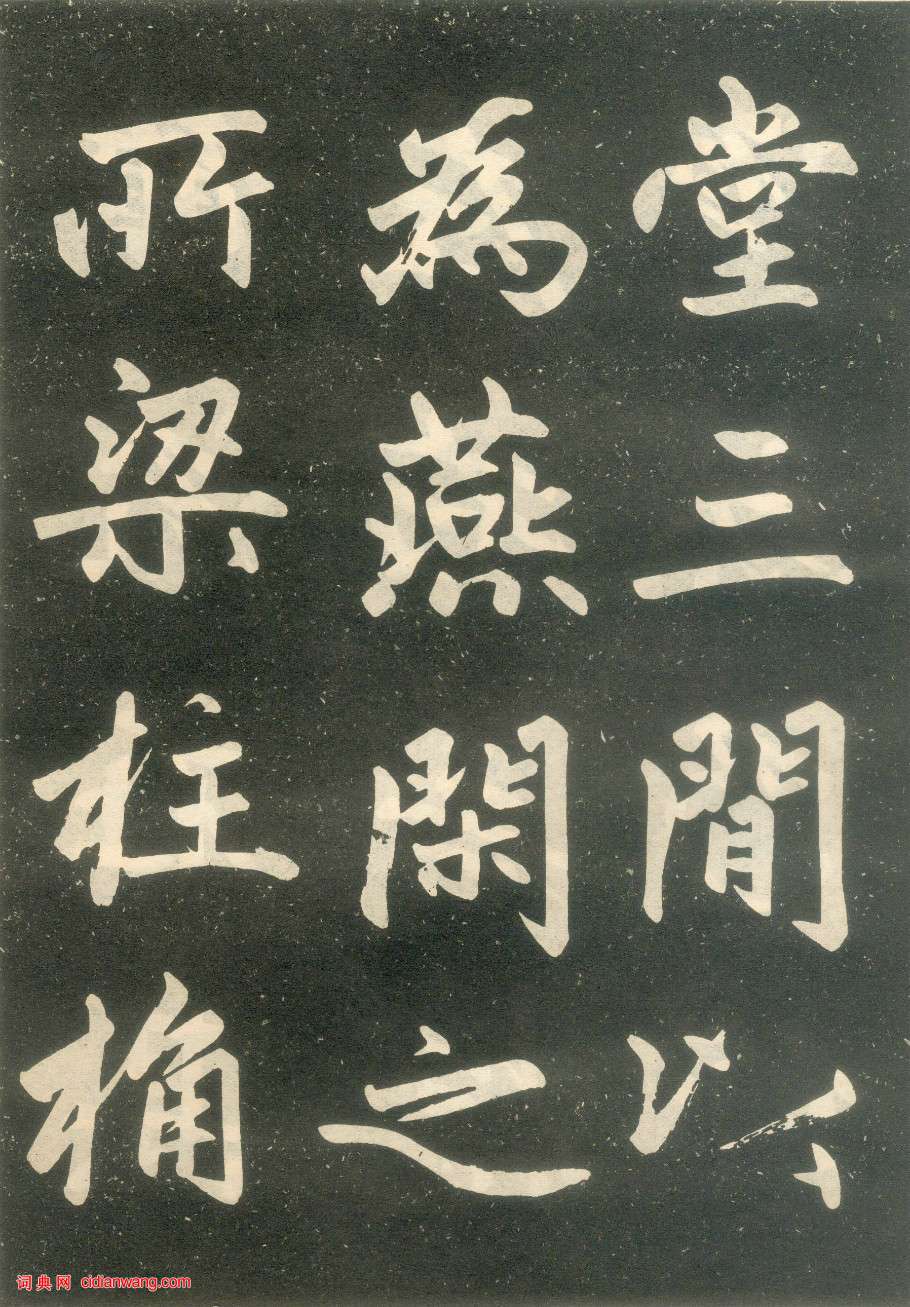 堂三間以
為燕閑之
所梁柱桷
词典网 cidianwang.com